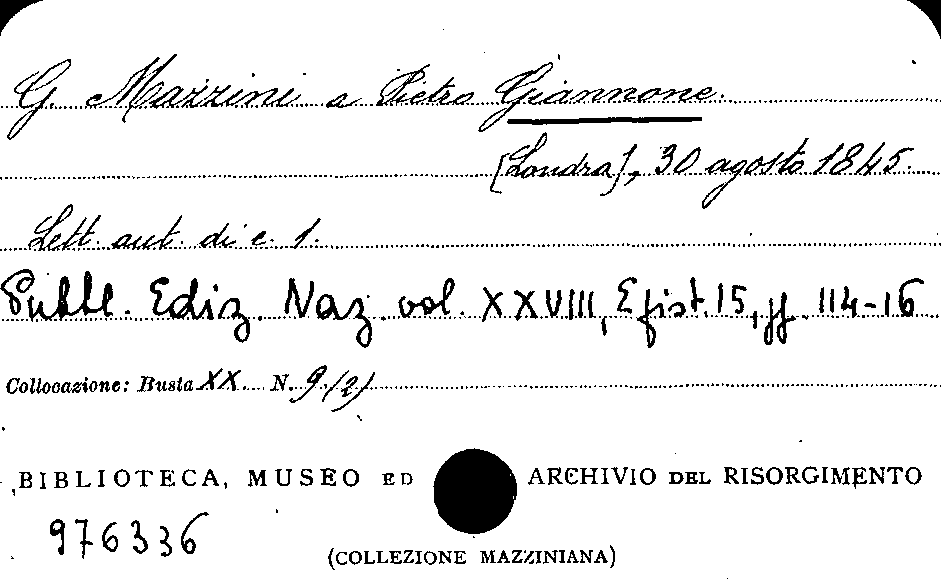 G. Mazzini a Pietro Giannone.
[Londra], 30 agosto 1845.
Lett. aut. di c. 1.
Pubbl. Ediz. Naz. vol. XXVIII, Epist. 15, pp. 114-16
Collocazione: Busta XX N. 9 (2)
BIBLIOTECA, MUSEO ED ARCHIVIO DEL RISORGIMENTO
976336
(COLLEZIONE MAZZINIANA)